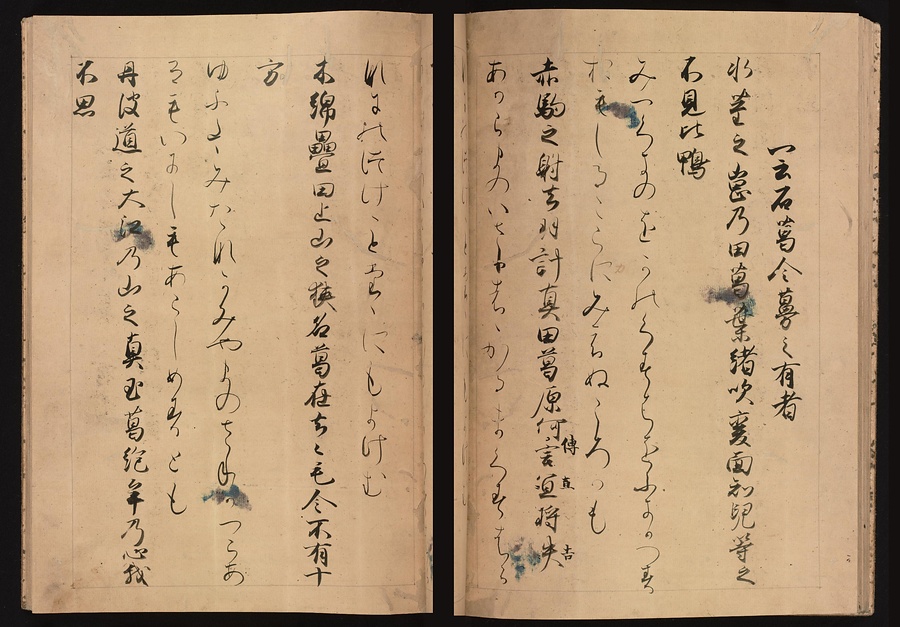 一云石葛令蔓之有者
水茎之崗乃田葛葉緒吹變面知兒等之
不見比鴨
みつくきのをかのくすはをふきかへす
おもしるこらにみえぬころかも
赤駒之射去羽計真田葛原何言直将失
傳 直 吉
あかこまのいゆきはゝかるまくすはら
なにのつけことたゝにもよけむ
木綿疊田上山之狭名葛在去之毛令不有十
方
ゆふたゝみたなかみやまのさねかつらあ
るもいにしもあらしめすとも
丹波道之大江乃山之真玉葛絶牟乃心我
不思